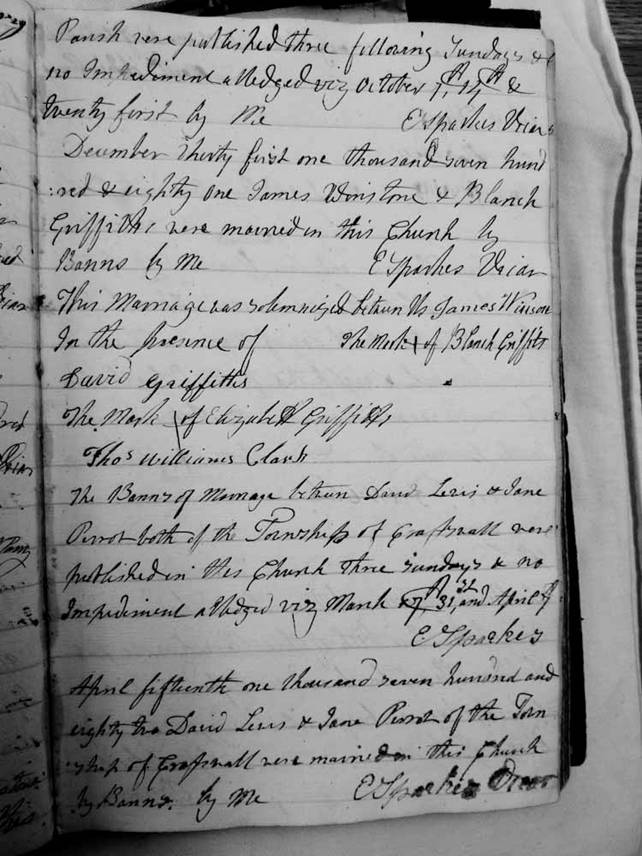 Parish were published three following Sundays &
no Impediment alledged viz October 7th, 14th &
twenty first by Me E Sparkes Vicar
December thirty first one thousand seven hund
:red & eighty one James Winstone & Blanch
Griffiths were married in this Church by
Banns by Me E Sparkes Vicar
This Marriage was solemnized between Us James Winson
In the presence of The Mark of Blanch Griffits
David Griffiths
The Mark of Elizabeth Griffiths
Thos Williams Clark
The Banns of Marriage between David Lewis & Jane
Perrot both of the Township of Crasswall were
published in this Church three Sundays & no
Impediment alledged viz March 31st, and April 7
E Sparkes
April fifteenth one thousand seven hundred and
eighty two David Lewis & Jane Perrot of the Town
:ship of Crasswall were married in this Church
by Banns. by Me E Sparkes Vicar